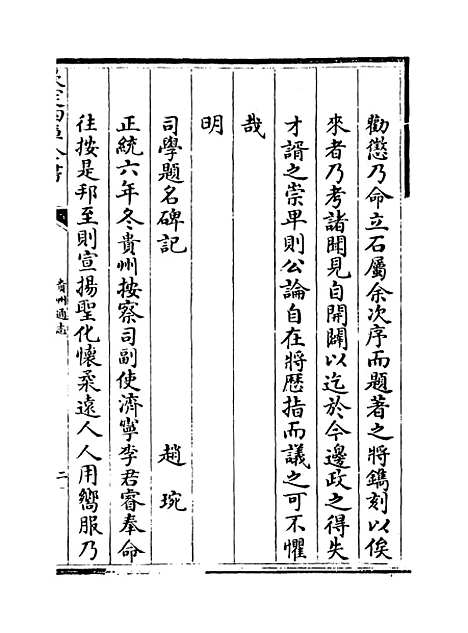 勸懲乃命立石屬余次序而題著之將鐫刻以俟
來者乃考諸聞見自開闢以迄於今邊政之得失
才諝之崇卑則公論自在將歴指而議之可不懼
哉
明
司學題名碑記 趙琬
正統六年冬貴州按察司副使濟寧李君睿奉命
往按是邦至則宣揚聖化懷柔遠人人用嚮服乃
貴州通志 二